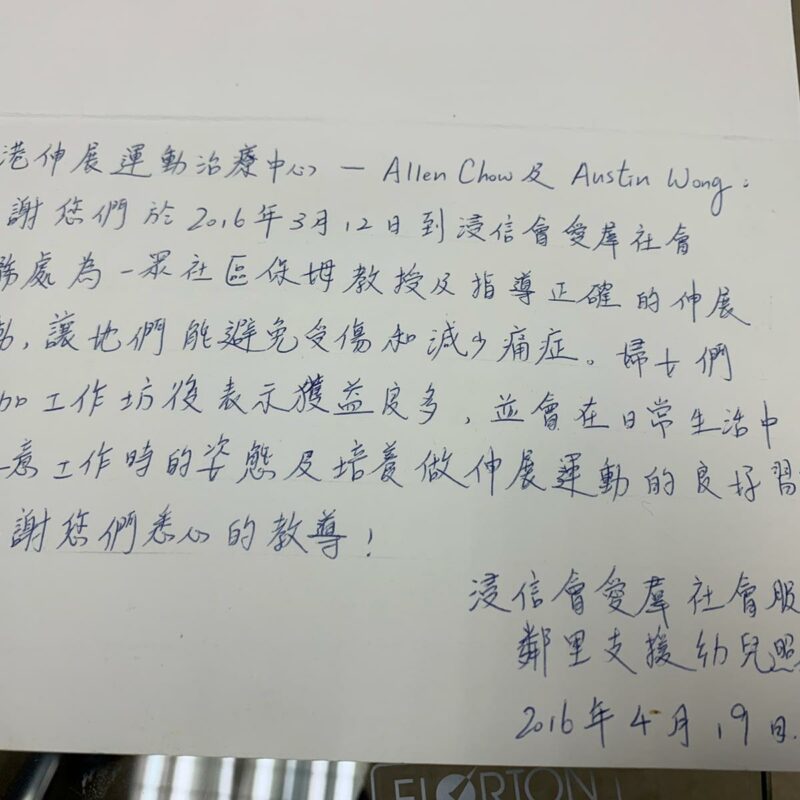 港伸展運動治療中心 — Allen Chow 及 Austin Wong:
謝您們於2016年3月12日到浸信會愛羣社會
務處為一眾社區保姆教授及指導正確的伸展
動,讓她們能避免受傷和減少痛症。婦女們
加工作坊後表示獲益良多,並會在日常生活中
意工作時的姿態及培養做伸展運動的良好習
謝您們悉心的教導!
浸信會愛羣社會服
鄰里支援幼兒照
2016年4月19日.